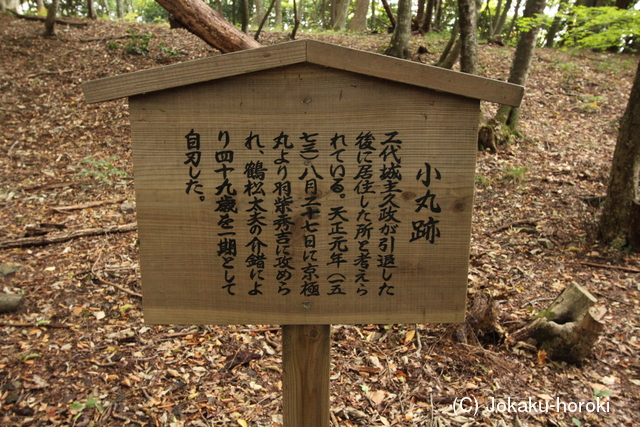 小丸跡
二代城主久政が引退した
後に居住した所と考えら
れている。天正元年（一五
七三）八月二十七日に京極
丸より羽柴秀吉に攻めら
れ、鶴松太夫の介錯によ
り四十九歳を一期として
自刃した。
(C) Jokaku-horoki